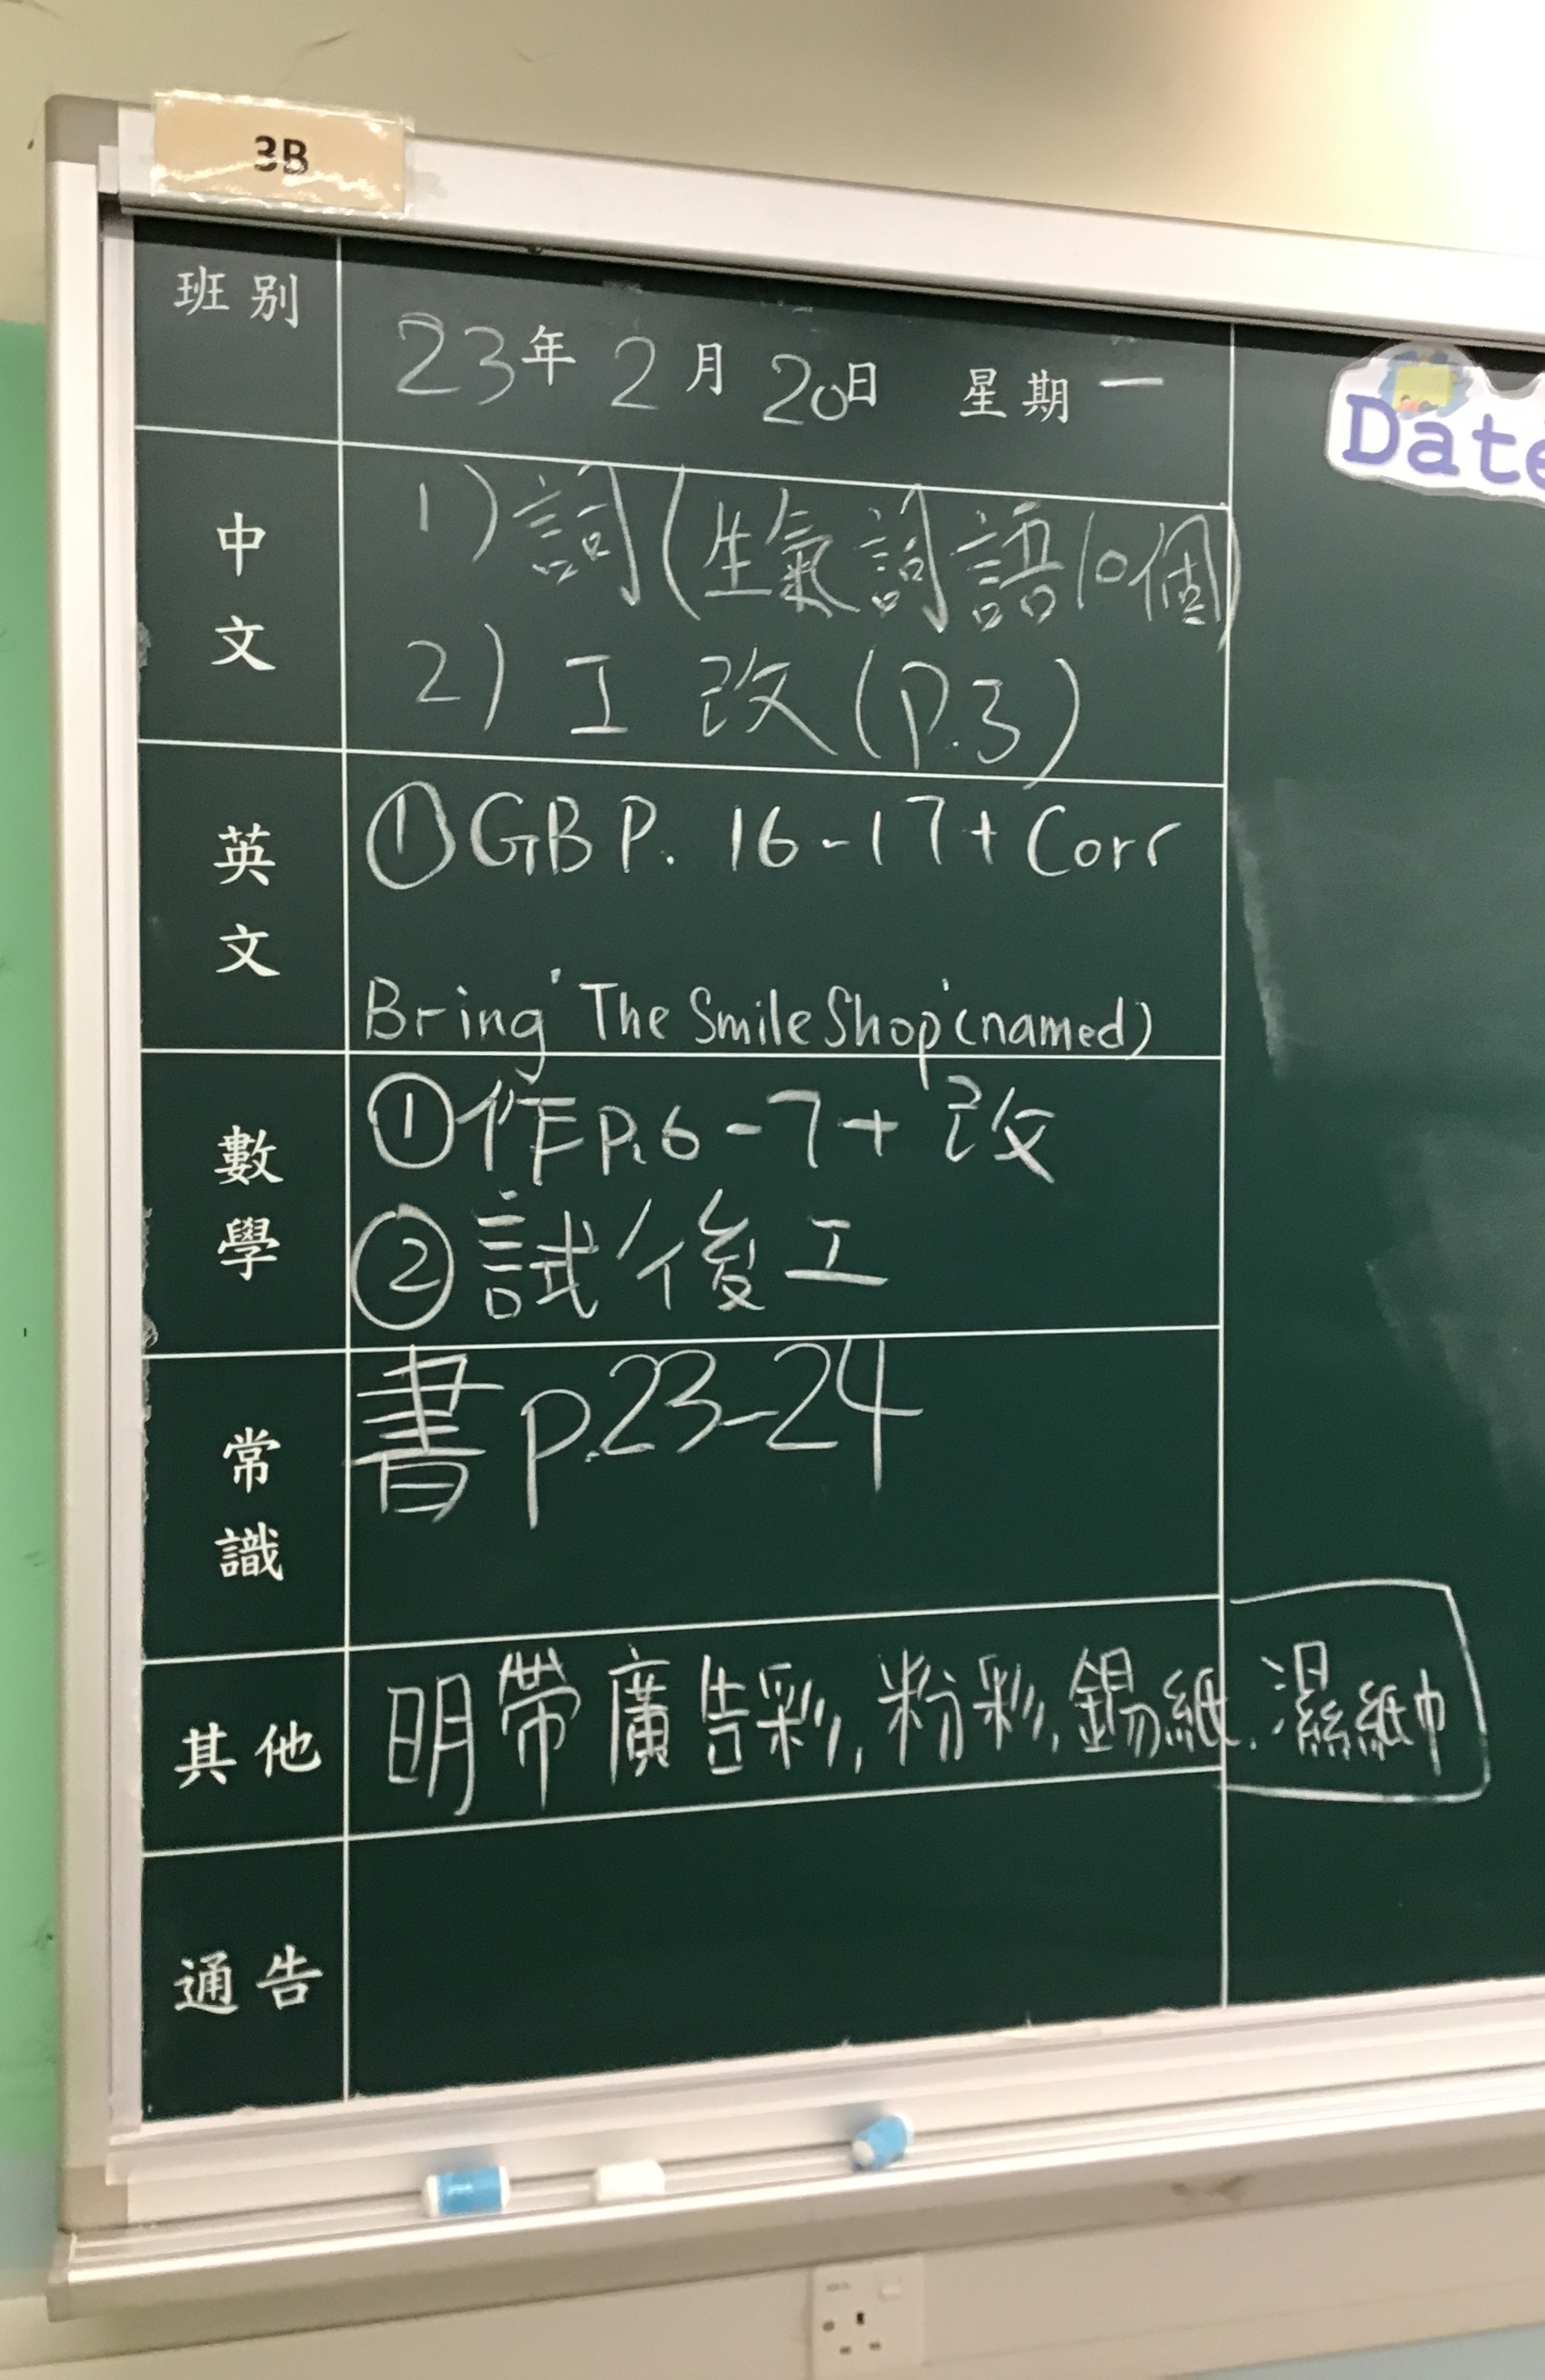 3B
班別
23年2月20日 星期一
Date
中文
1) 詞(生氣詞語10個)
2) 工 改(P.3)
英文
①GB P. 16-17+Corr
Bring 'The Smile Shop' (named)
數學
①作P.6-7+改
②試後工
常識
書p.23-24
其他
明帶廣告彩,粉彩,錫紙.濕紙巾
通告